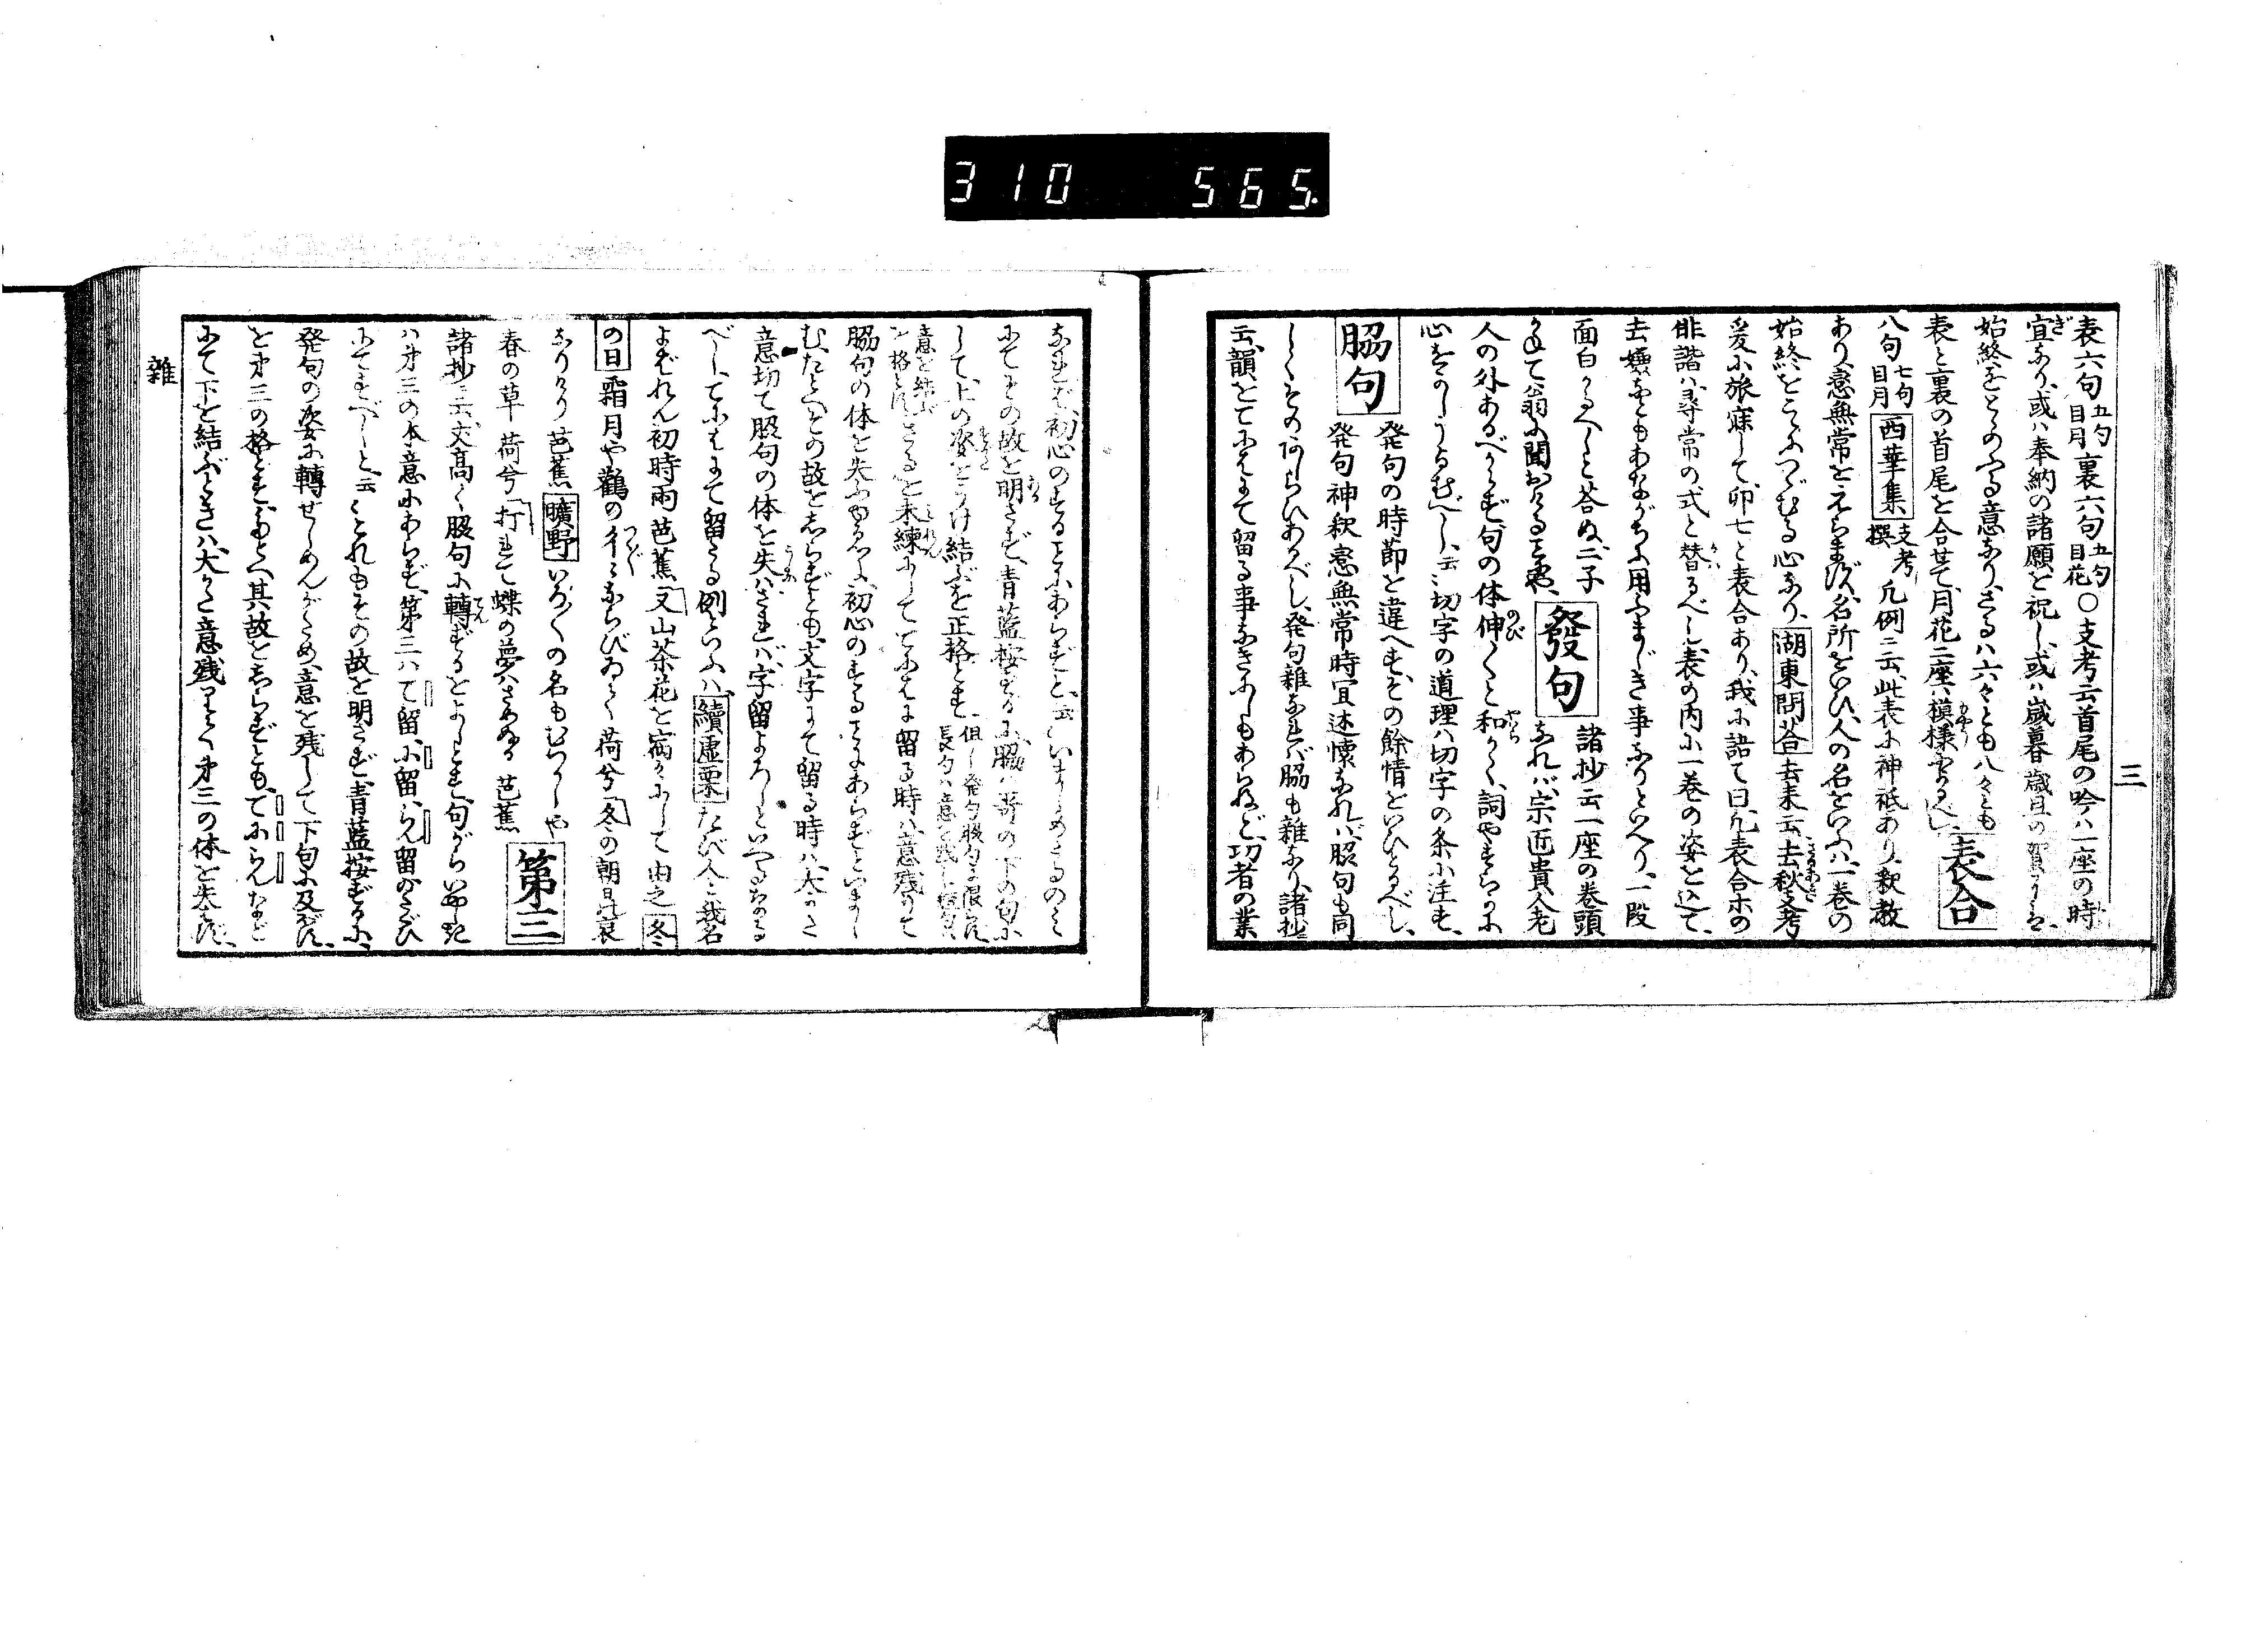 310 565.
三
表六句 五句目月 裏六句 五句目花 ○支考云首尾の吟ハ一座の時
宜なり或ハ奉納の諸願を祝し或ハ歳暮歳旦の賀
始終をとゝのへる意なりさるハ六々とも八々とも 表合
表と裏の首尾を合せて月花二座ハ模様
八句 七句目月 西華集 支考撰 凡例ニ云此表に神祇あり釈教
あり恋無常をえらまず名所をいひ人の名をいふハ一巻の
始終をこゝにつゞむる心なり 湖東問答 去来云去秋支考
爰に旅寐して卯七と表合あり我に語て曰凡表合ホの
俳諧ハ尋常の式と替るべし表の内に一巻の姿を込て
去嫌などもあながちに用ふまじき事なりといへり一段
面白かるべしと答ぬ二子 發句 諸抄云一座の巻頭
かねて翁に聞おける事也 なれバ宗匠貴人老
人の外あるべからず句の体伸〱と和らく詞やすらかに
心をのうるむべし云々切字の道理ハ切字の条に注す
脇句 発句の時節を違へずその餘情をいひとるべし
発句神釈恋無常時宜述懐なれバ脇句も同
しくその あしらひあるべし発句雑なれバ脇も雑なり諸抄ニ
云韻とてにをはにて留る事なきにしもあらねど功者の業
なれば初心のする事にあらずと云々いましめたるのミ
にてその故を明さず青藍按ずるに脇ハ哥の下の句に
して上の姿をうけ結ぶを正格とす 但し発句脇句に限らず長句ハ意を残し短句ハ
意を結ぶを格とす さるを未練にしててにをはに留る時ハ意残りて
脇句の体を失ふゆゑに初心のする事にあらずといまし
むたとへその故をしらずとも文字にて留る時ハ大かた
意切て脇句の体を失ハざれバ字留よろしといへるなる
べしてにをはにて留たる例といふハ 續虚栗 たび人と我名
よばれん初時雨 芭蕉 又山茶花を宿々にして 由之 冬
の日 霜月や鸛の彳々ならびゐて 荷兮 冬の朝日の哀
なりけり 芭蕉 曠野 いろ〱の名もむつかしや
春の草 荷兮 打れて蝶の夢ハさめぬる 芭蕉 第三
諸抄ニ云丈高く脇句に轉ずるをよしとす句がらいやしき
ハ第三の本意にあらず第三ハて留に留らん留のたぐひ
にてすべしと云々これもその故を明さず青藍按ずるに
発句の姿に轉ぜしめんがため意を残して下句に及ぶ
を第三の格とすたとへ其故をしらずとも てにらんなど
にて下を結ぶときハ大かた意残りて第三の体を失ハず
雜